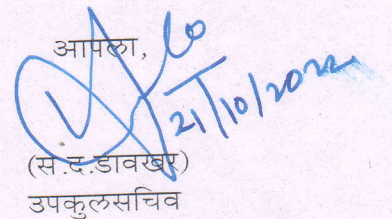 आपला,
21/10/2022
(स.द.डावखर)
उपकुलसचिव